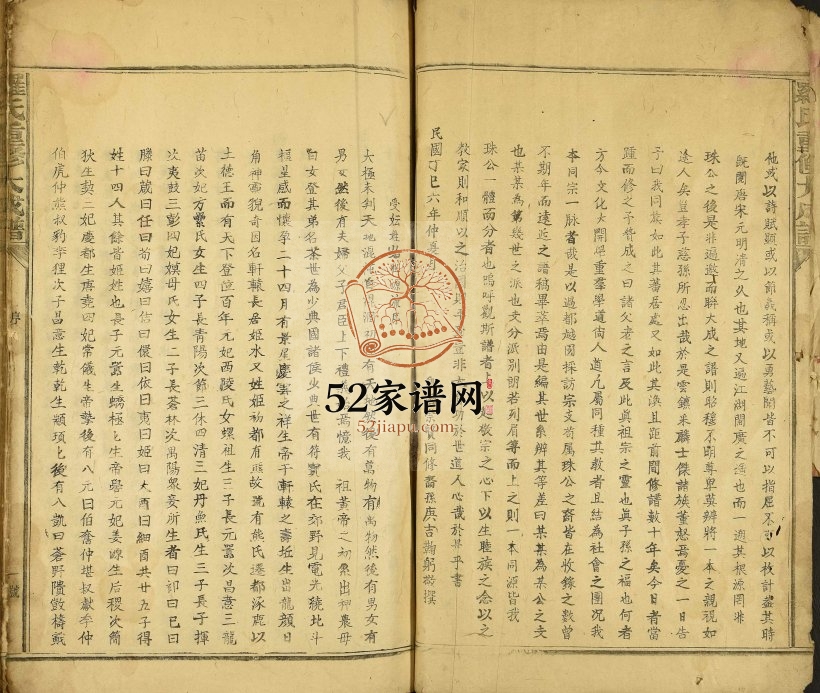 羅氏重修大成譜
他或以詩賦顯或以節義稱或以勇藝聞皆不可以指屈不可以枚計盡其時
既閱唐宋元明清之久也其地又過江湖閩廣之遙也而一遡其根源罔非
珠公之後是非通遡而聯大成之譜則昭穆不明尊卑莫辨將一本之親視如
途人矣豈孝子慈孫所忍出哉於是雲鑣米麟士傑諸族董怒焉憂之一日告
子曰我同族如此其蕃居處又如此其渙且距前間修譜數十年矣今日者當
踵而修之予贊成之曰諸父老之言及此真祖宗之靈也真子孫之福也何者
方今文化大開學重羣學道尚人道凡屬同種其教者且結為社會之團況我
本同宗一脉者哉是以過都越國採訪宗支苟属珠公之裔皆在收錄之數曾
不期年而遠近之譜稿畢萃焉由是編其世系辨其等差曰某某為某公之支
也某某為第幾世之派也支分派別朗若列眉等而上之則一本同源皆我
珠公一體而分者也嗚呼觀斯譜者以敬宗之心下以生睦族之念以之
教家則和順以之治
於世道人心哉於是乎書
民國丁巳六年仲
同修裔孫庚吉鞠躬撰
受姓
大極未判天地混
有天地然後有萬物有萬物然後有男女有
男女然後有夫婦父子君臣上下禮
憶我祖黃帝之初系出神農母
曰女登其弟名荼世為少典國諸侯少典世有符寶氏在郊野見電光繞北斗
樞星感而懷孕二十四月有景星慶雲之祥生帝于軒轅之壽坵生出龍顏日
角神靈猊奇因名軒轅長居姬水又姓姬初都有熊故號有熊氏遷都涿鹿以
土德王而有天下登位百年元妃西陵氏女嫘祖生三子長元囂次昌意三龍
苗次妃方纍氏女生四子長青陽次節三休四清三妃丹魚民生三子長子揮
次夷鼓三彭四妃嫫母氏女生二子長蒼林次禺陽衆妾所生者曰祁曰己曰
滕曰葴曰任曰荀曰嬉曰佶曰儇曰依曰夷曰姬曰大酉曰細酉共廿五子得
姓十四人其餘皆姬姓也長子元囂生蟜極々生帝嚳元妃姜嫄生后稷次簡
狄生契三妃慶都生唐堯四妃常儀生帝摯後有八元曰伯奮仲堪叔獻季仲
伯虎仲熊叔豹季狸次子昌意生乾乾生顓頊々後有八凱曰蒼野隤敳檮戭
羅氏重修大成譜
序
52家谱网
52jiapu.com